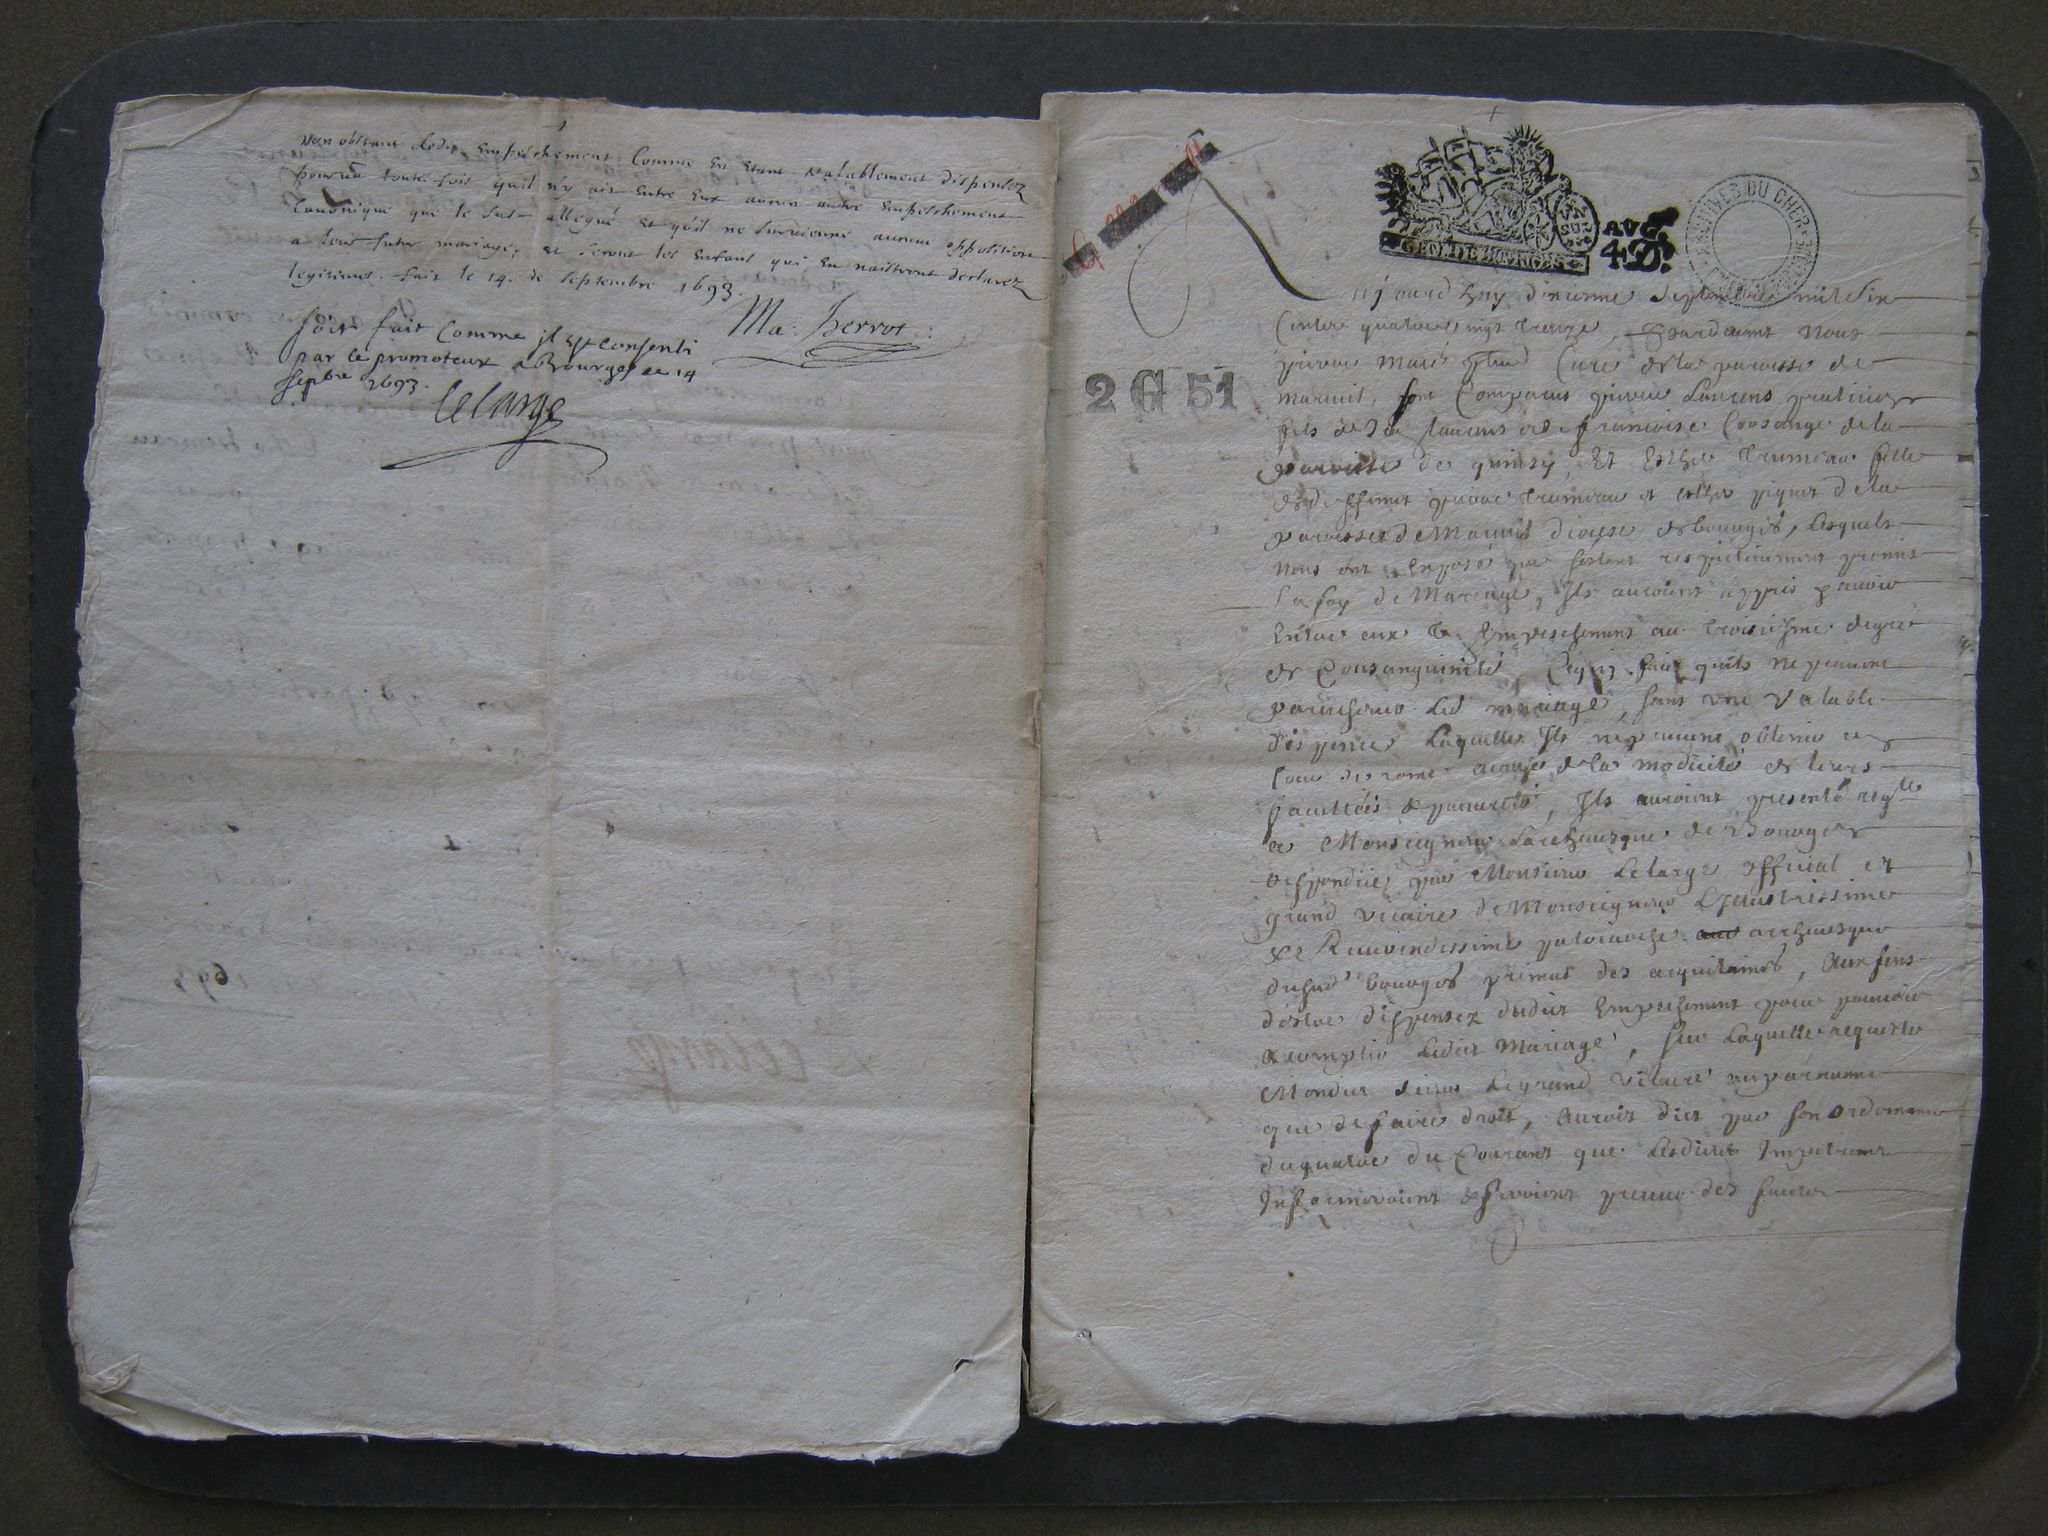 non obstant ledit empeschement comme en etant valablement dispensez
pourvu toutefois qu'il n'y ait entre eux aucun autre empeschement
canonique que le sus allegué et qu'il ne survienne aucune opposition
a leur futur mariage, et seront les enfans qui en naistront declarez
legitimes. fait le 14. de septembre 1693.
Ma: herrot
soit fait comme il est consenti
par le promoteur a Bourges ce 14
sepbre 1693.
Lelarge
693
GEN. DE BOURGES
AVG.
4 D.
ARCHIVES DU CHER
2 G 51
Aujourdhuy dixieme septembre mil six
centz quatre vingt treize, pardevant nous
curé de la paroisse de
Mareuil, sont comparus pierre Laurens praticien
fils de Laurens et de francoise Cousange de la
paroisse de quincy, et Esther Trumeau fille
de deffunct Trumeau et esther piquet de la
paroisse de Mareuil diocese de bourges, lesquels
nous ont exposé que s'estant respectivement promis
la foy de Mariage, Ils auroient appris y avoir
Entre eux Empeschement au troisiesme degré
de Consanguinité, qui faict quils ne peuvent
parachever led mariage, sans une valable
dispence Laquelle Ils ne peuvent obtenir en
cour de rome a cause de la modicité de leurs
facultés & pauvreté, Ils auroient presenté reqte
a Monseigneur Larchevesque de Bourges
respondüe par Monsieur Lelarge official et
grand vicaire de Monseigneur L'Illustrissime
& Reverendissime patriarche archevesque
dud bourges primat des acquitaines, aux fins
destre dispensez dudict Empeschement pour pouvoir
acomplir Ledict Mariage, sur Laquelle requeste
Mondict sieur Le grand vicaire auparavant
que de faire droit, auroit dict par son ordonnance
du quatre du Courant que Lesdicts Impetrans
Informeroient & feroient preuve des faicts